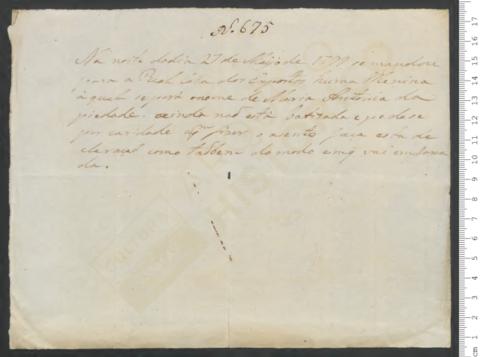 N. 675
Na noite do dia 27 de Majo de 1799 se mandou
para a Real Caza dos Expostos huma Menina
a qual se porá o nome de Maria Antonia da
piedade. ainda naõ está batizada e pedese
por caridade a q.m fizer o asento faca esta de
claraçaõ como taõbem do modo em q vai
da.